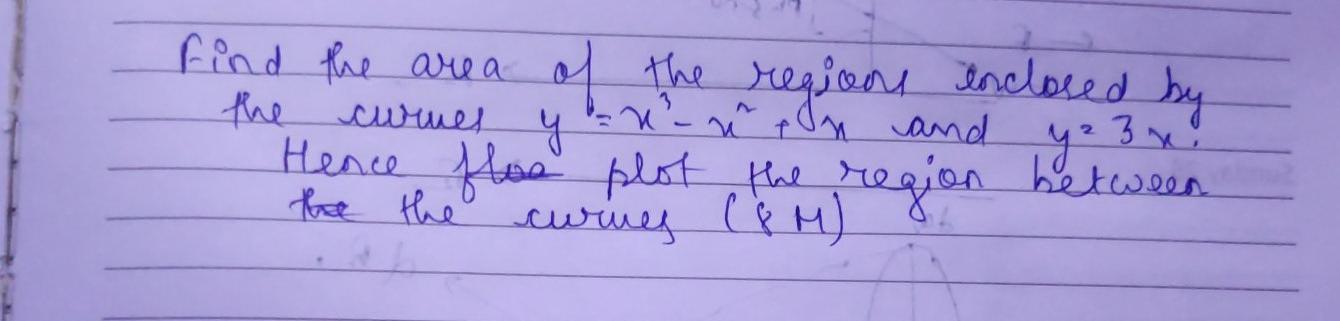 Find the area of the regions enclosed by
the curves y = x³ - x² + x and y = 3x.
Hence plot the region between
the curves (8 M)